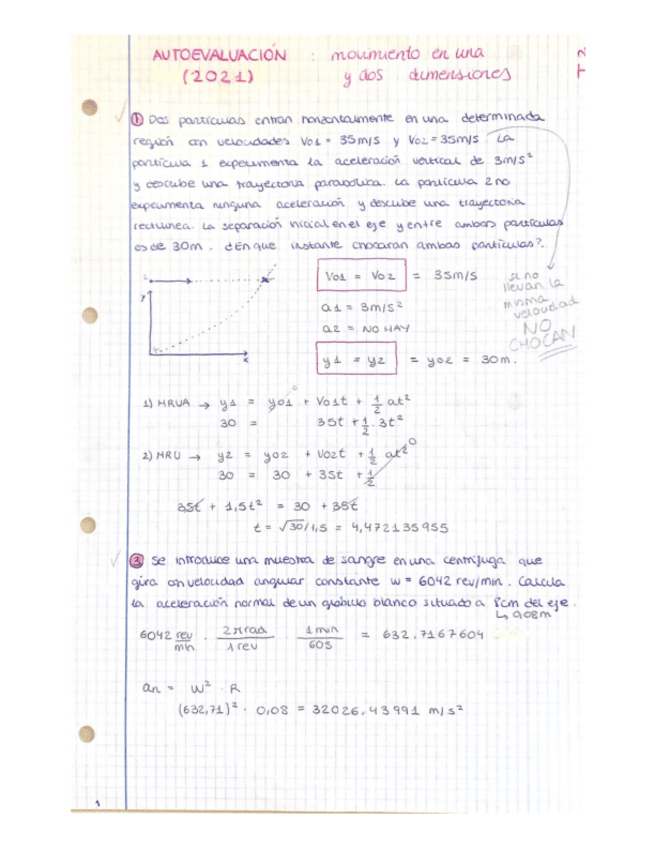 AUTOEVALUACIÓN : movimiento en una
(2021) y dos dimensiones
T2
① Dos partículas entran horizontalmente en una determinada
región con velocidades Vo1 = 35m/s y Vo2 = 35m/s. La
partícula 1 experimenta la aceleración vertical de 3m/s²
y describe una trayectoria parabólica. La partícula 2 no
experimenta ninguna aceleración y describe una trayectoria
rectilínea. La separación inicial en el eje y entre ambas partículas
es de 30m. ¿En que instante chocaran ambas partículas?.
Vo1 = Vo2 = 35m/s
a1 = 3m/s²
a2 = NO HAY
y1 = y2 = yo2 = 30m.
si no
llevan la
misma
velocidad
NO
CHOCAN
y
x
1) MRUA → y1 = yo1 + Vo1t + 1/2 at²
0
30 = 35t + 1/2 . 3t²
2) MRU → y2 = yo2 + Vo2t + 1/2 at² 0
30 = 30 + 35t + 1/2
35t + 1,5t² = 30 + 35t
t = √30/1,5 = 4,472135955
③ Se introduce una muestra de sangre en una centrífuga que
gira con velocidad angular constante w = 6042 rev/min. Calcula
la aceleración normal de un glóbulo blanco situado a 8cm del eje.
↳ 0,08m
6042 rev/min · 2πrad/1 rev · 1 min/60s = 632,7167604
an = w² · R
(632,71)² · 0,08 = 32026,43991 m/s²
1